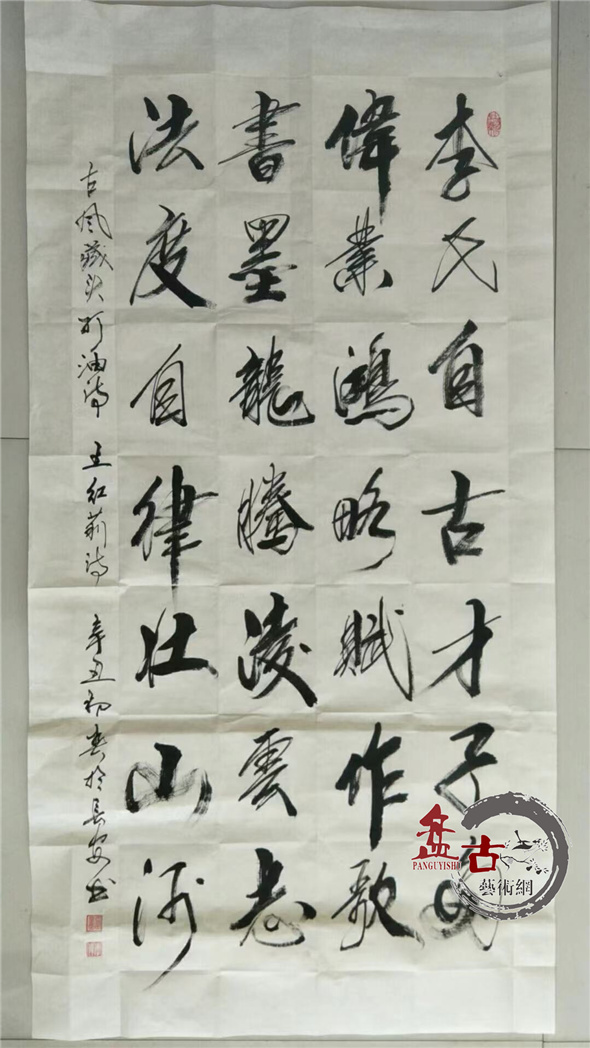 李氏自古才子多
偉業鴻略賦作歌
書墨龍騰凌雲志
法度自律壯山河
古风藏头打油诗 王红莉诗 辛丑初春於長安书
盘古
PANGUYISHU
藝術網